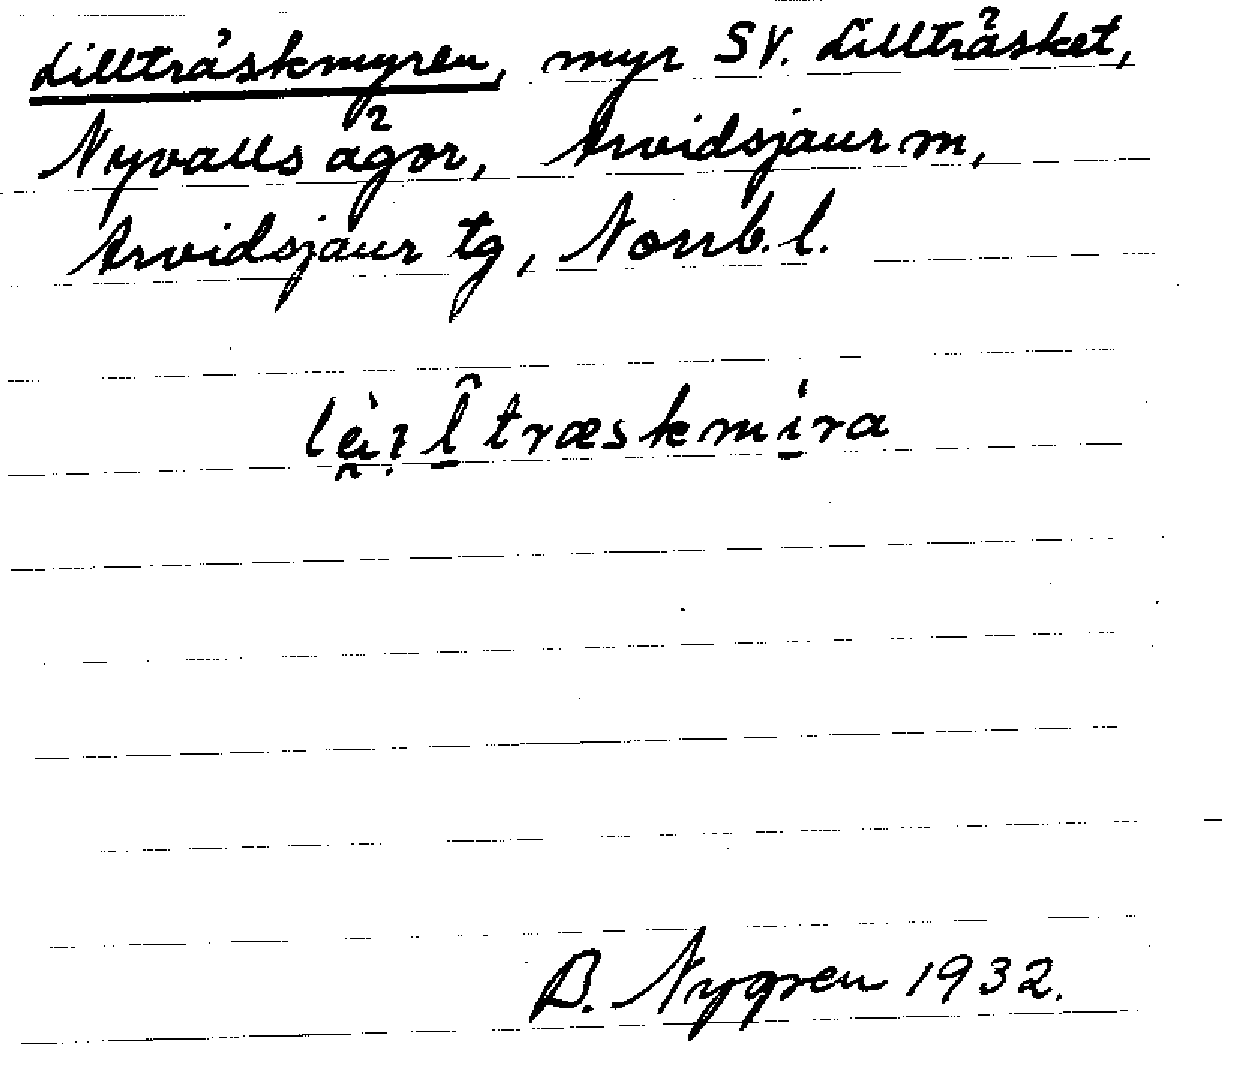 Lillträskmyren, myr SV. Lillträsket,
Nyvalls ägor, Arvidsjaur m,
Arvidsjaur tg, Norrb. l.
træskmira
B. Nygren 1932.